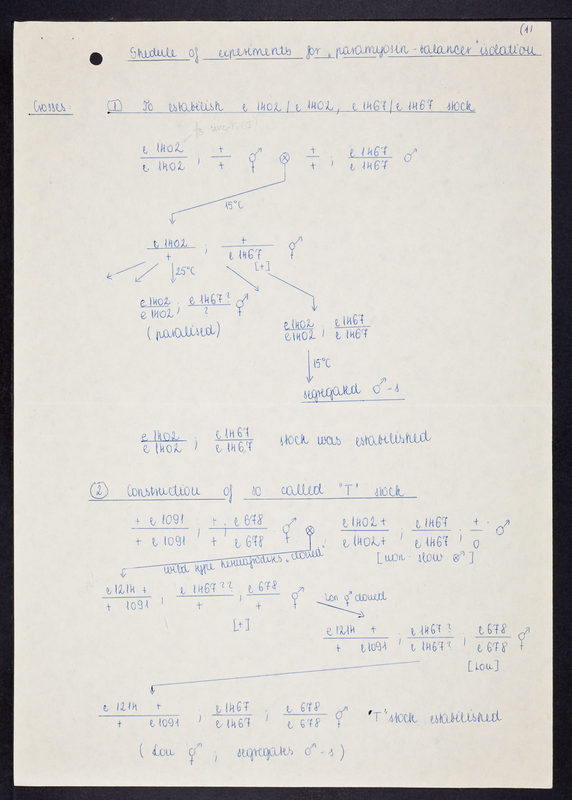 (1)
Shedule of experiments for "paramyosin-balancer" isolation
Crosses: 1 To establish e 1402/e 1402, e 1467/e 1467 stock
e 1402 / e 1402 ; + / + ⚥ ⊗ + / + ; e 1467 / e 1467 ♂
15°C
e 1402 / + ; + / e 1467 ⚥
25°C [+]
e 1402 / e 1402 ; e 1467? / ? ⚥
(paralised)
e 1402 / e 1402 ; e 1467 / e 1467
15°C
segregand ♂-s
e 1402 / e 1402 ; e 1467 / e 1467 stock was estabilished
2 Construction of so called "T" stock
+ e 1091 / + e 1091 ; + / + ; e 678 / e 678 ⚥ ⊗ e 1402 + / e 1402 + ; e 1467 / e 1467 ; + / 0 ♂
wild type hermaphrodits "cloned" [non-slow ♂]
e 1214 + / + 1091 ; e 1467?? / + ; e 678 / + ⚥ Lon ⚥ cloned
[+]
e 1214 + / + e 1091 ; e 1467? / e 1467? ; e 678 / e 678 ⚥
[Lon]
e 1214 + / + e 1091 ; e 1467 / e 1467 ; e 678 / e 678 ⚥ "T" stock estabilished
(Lon ⚥ ; segregans ♂-s)